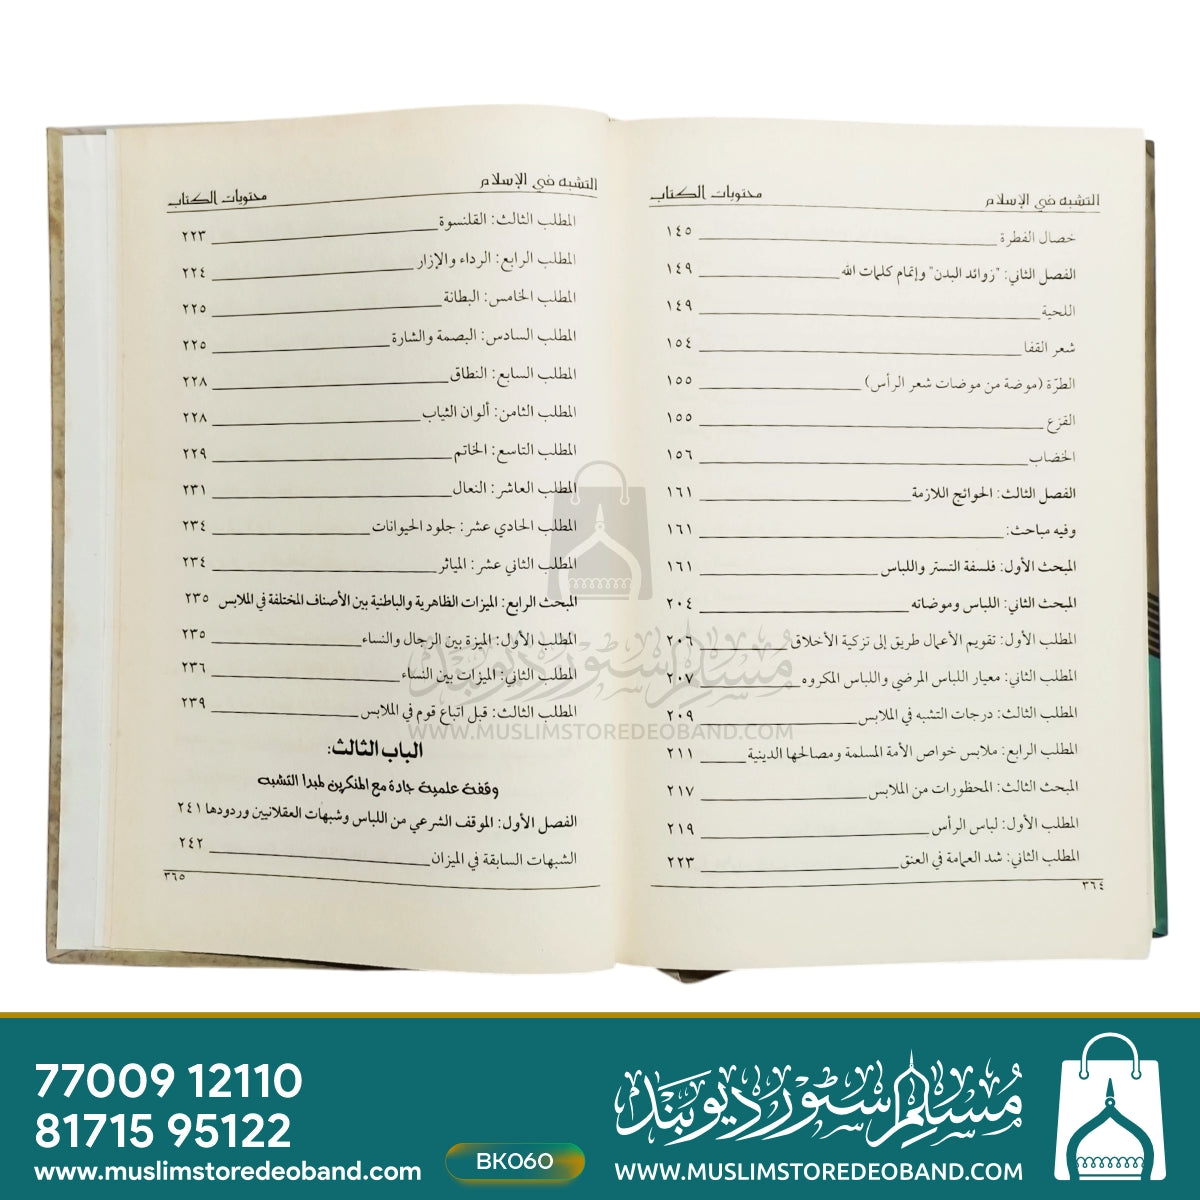 التشبه في الإسلام
محتويات الكتاب
خصال الفطرة ١٤٥
الفصل الثاني: "زوائد البدن" وإتمام كلمات الله ١٤٩
اللحية ١٤٩
شعر القفا ١٥٤
الطرّة (موضة من موضات شعر الرأس) ١٥٥
القزع ١٥٥
الخضاب ١٥٦
الفصل الثالث: الحوائج اللازمة ١٦١
وفيه مباحث: ١٦١
المبحث الأول: فلسفة التستر واللباس ١٦١
المبحث الثاني: اللباس وموضاته ٢٠٤
المطلب الأول: تقويم الأعمال طريق إلى تزكية الأخلاق ٢٠٦
المطلب الثاني: معيار اللباس المرضي واللباس المكروه ٢٠٧
المطلب الثالث: درجات التشبه في الملابس ٢٠٩
المطلب الرابع: ملابس خواص الأمة المسلمة ومصالحها الدينية ٢١١
المبحث الثالث: المحظورات من الملابس ٢١٧
المطلب الأول: لباس الرأس ٢١٩
المطلب الثاني: شد العمامة في العنق ٢٢٣
٣٦٤
التشبه في الإسلام
محتويات الكتاب
المطلب الثالث: القلنسوة ٢٢٣
المطلب الرابع: الرداء والإزار ٢٢٤
المطلب الخامس: البطانة ٢٢٥
المطلب السادس: البصمة والشارة ٢٢٥
المطلب السابع: النطاق ٢٢٨
المطلب الثامن: ألوان الثياب ٢٢٨
المطلب التاسع: الخاتم ٢٢٩
المطلب العاشر: النعال ٢٣١
المطلب الحادي عشر: جلود الحيوانات ٢٣٤
المطلب الثاني عشر: المياثر ٢٣٤
المبحث الرابع: الميزات الظاهرية والباطنية بين الأصناف المختلفة في الملابس ٢٣٥
المطلب الأول: الميزة بين الرجال والنساء ٢٣٥
المطلب الثاني: الميزات بين النساء ٢٣٦
المطلب الثالث: قبل اتباع قوم في الملابس ٢٣٩
الباب الثالث:
وقفة علمية جادة مع المنكرين لمبدا التشبه
الفصل الأول: الموقف الشرعي من اللباس وشبهات العقلانيين وردودها ٢٤١
الشبهات السابقة في الميزان ٢٤٢
٣٦٥
مسلم سٹور دیوبند
WWW.MUSLIMSTOREDEOBAND.COM
77009 12110
81715 95122
www.muslimstoredeoband.com
BK060
مسلم سٹور دیوبند
WWW.MUSLIMSTOREDEOBAND.COM